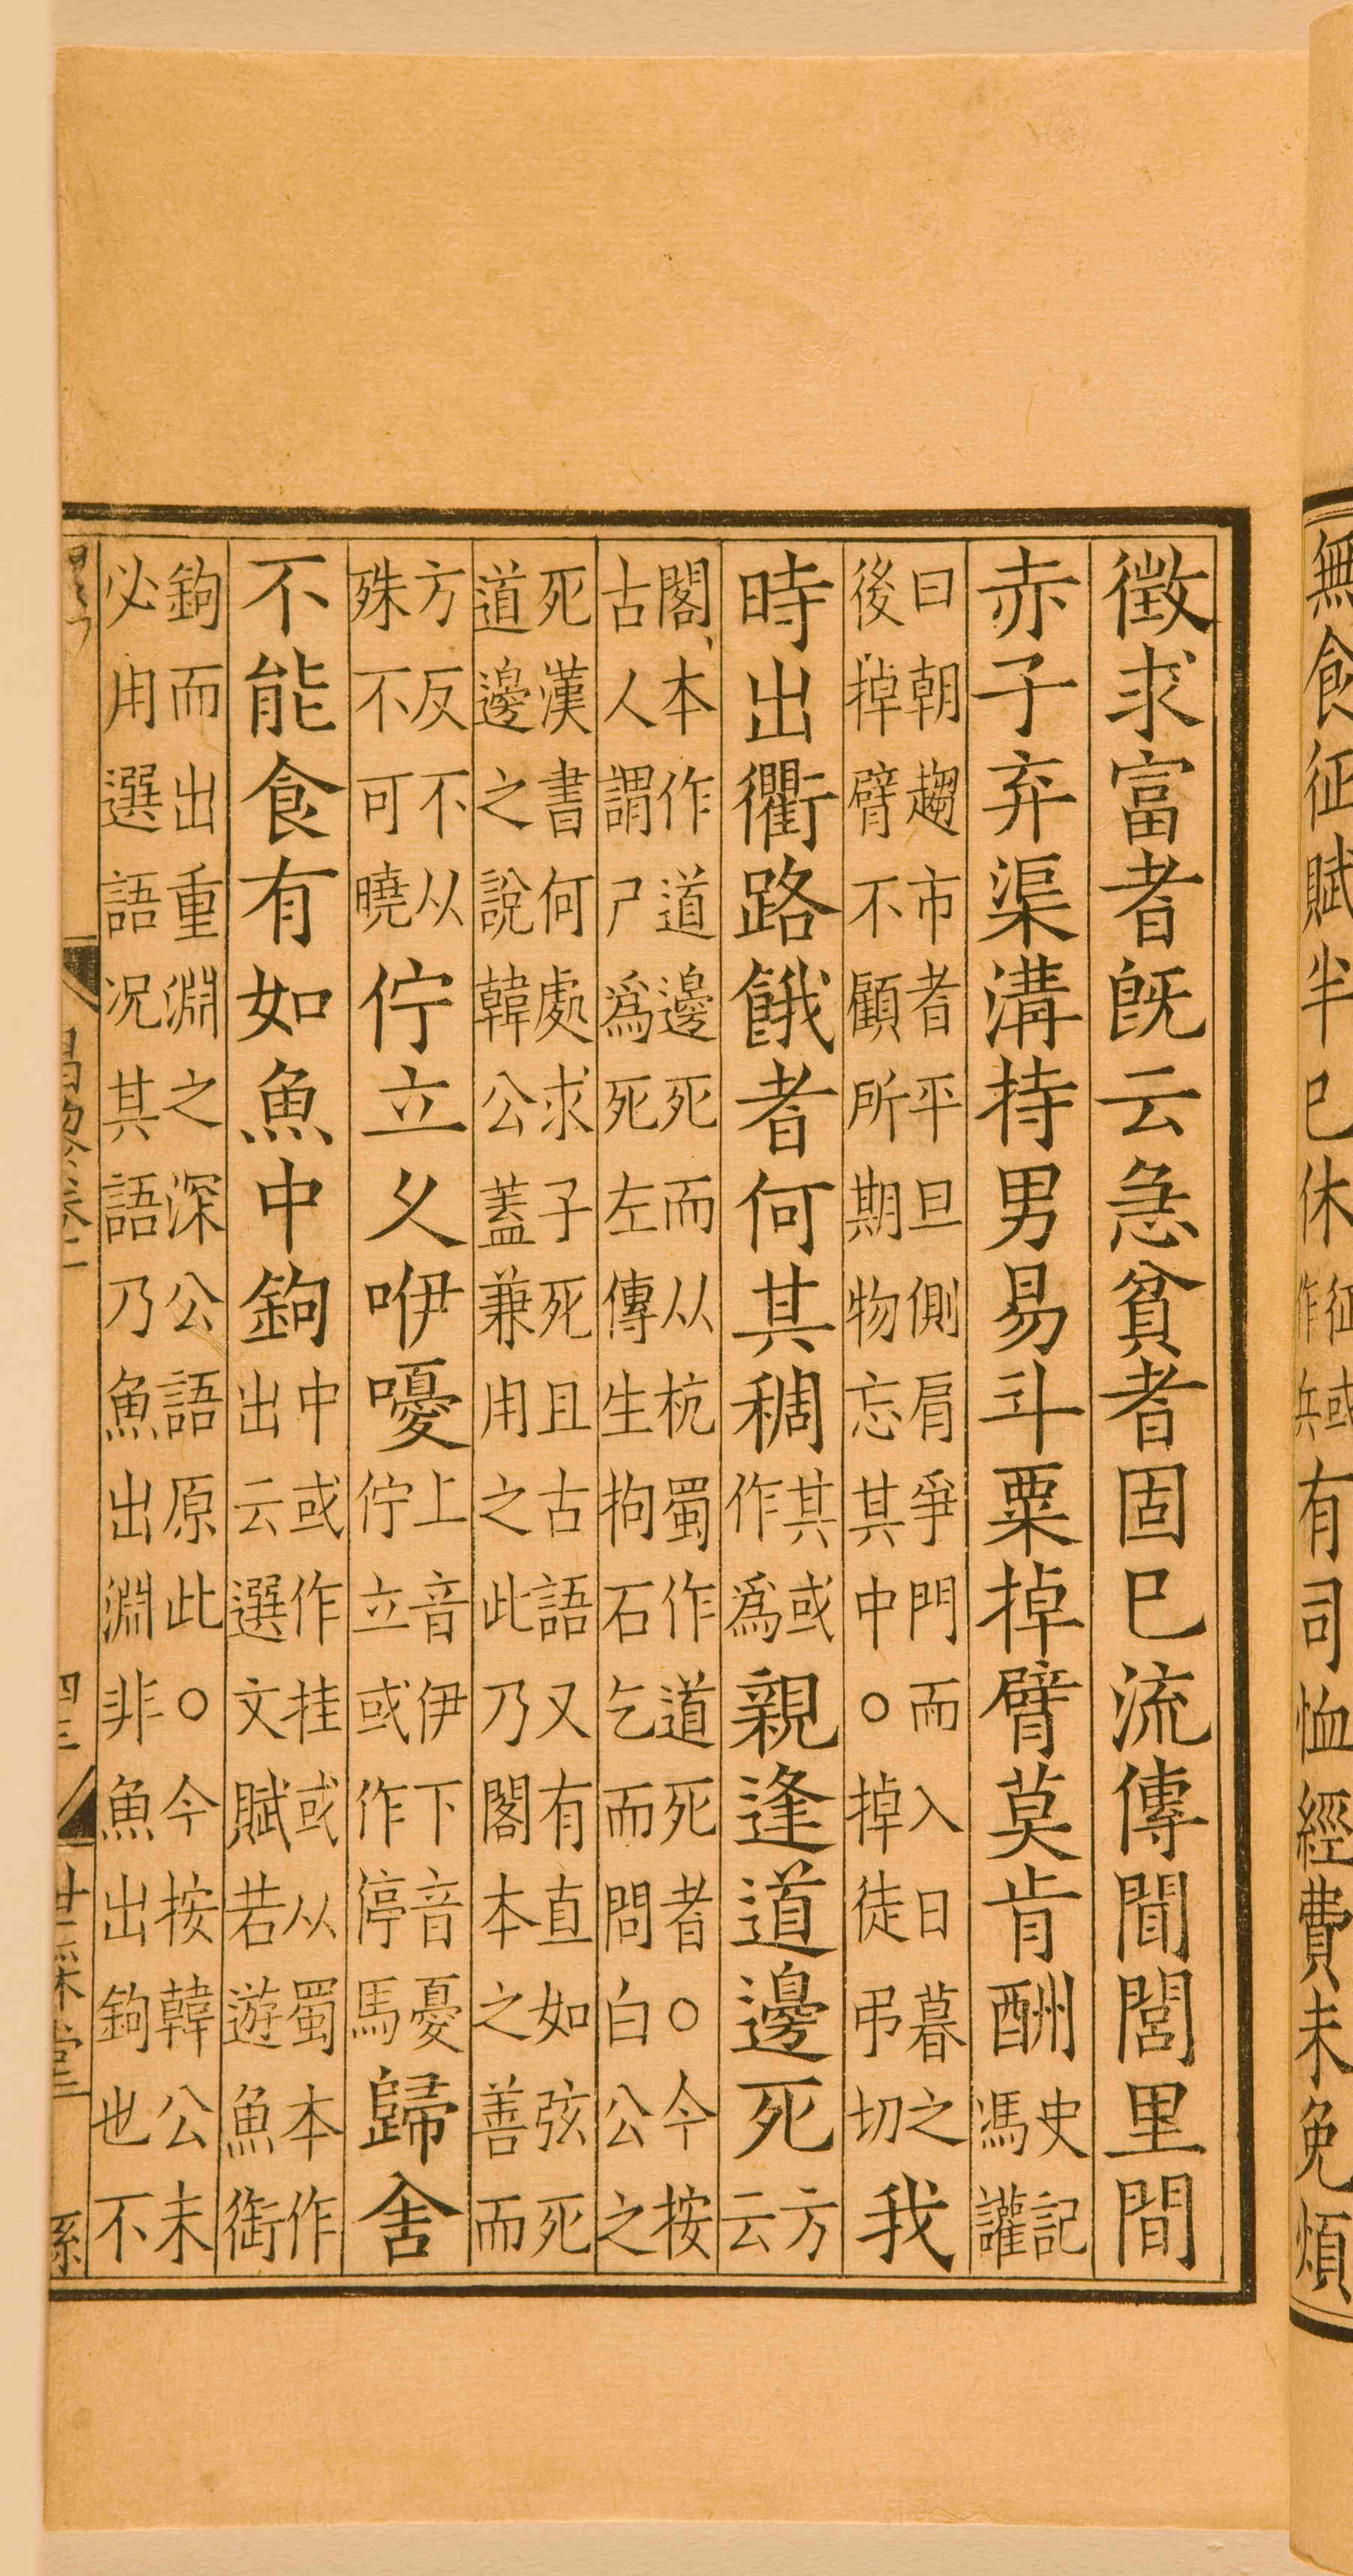 無食征賦半巳休征或作兵有司恤經費未免煩
徵求富者旣云急貧者固巳流傳聞閭里間
赤子弃渠溝持男易斗粟掉臂莫肯酬史記馮讙
曰朝趨市者平旦側肩爭門而入日暮之後掉臂不顧所期物忘其中○掉徒弔切我
時出衢路餓者何其稠其或作爲親逢道邊死方云
閣本作道邊死而从杭蜀作道死者○今按古人謂尸爲死左傳生拘石乞而問白公之
死漢書何處求子死且古語又有直如弦死道邊之說韓公蓋兼用之此乃閣本之善而
方反不从殊不可曉佇立久咿嚘上音伊下音憂佇立或作停馬歸舍
不能食有如魚中鉤中或作挂或从蜀本作出云選文賦若遊魚銜
鉤而出重淵之深公語原此○今按韓公未必用選語况其語乃魚出淵非魚出鉤也不